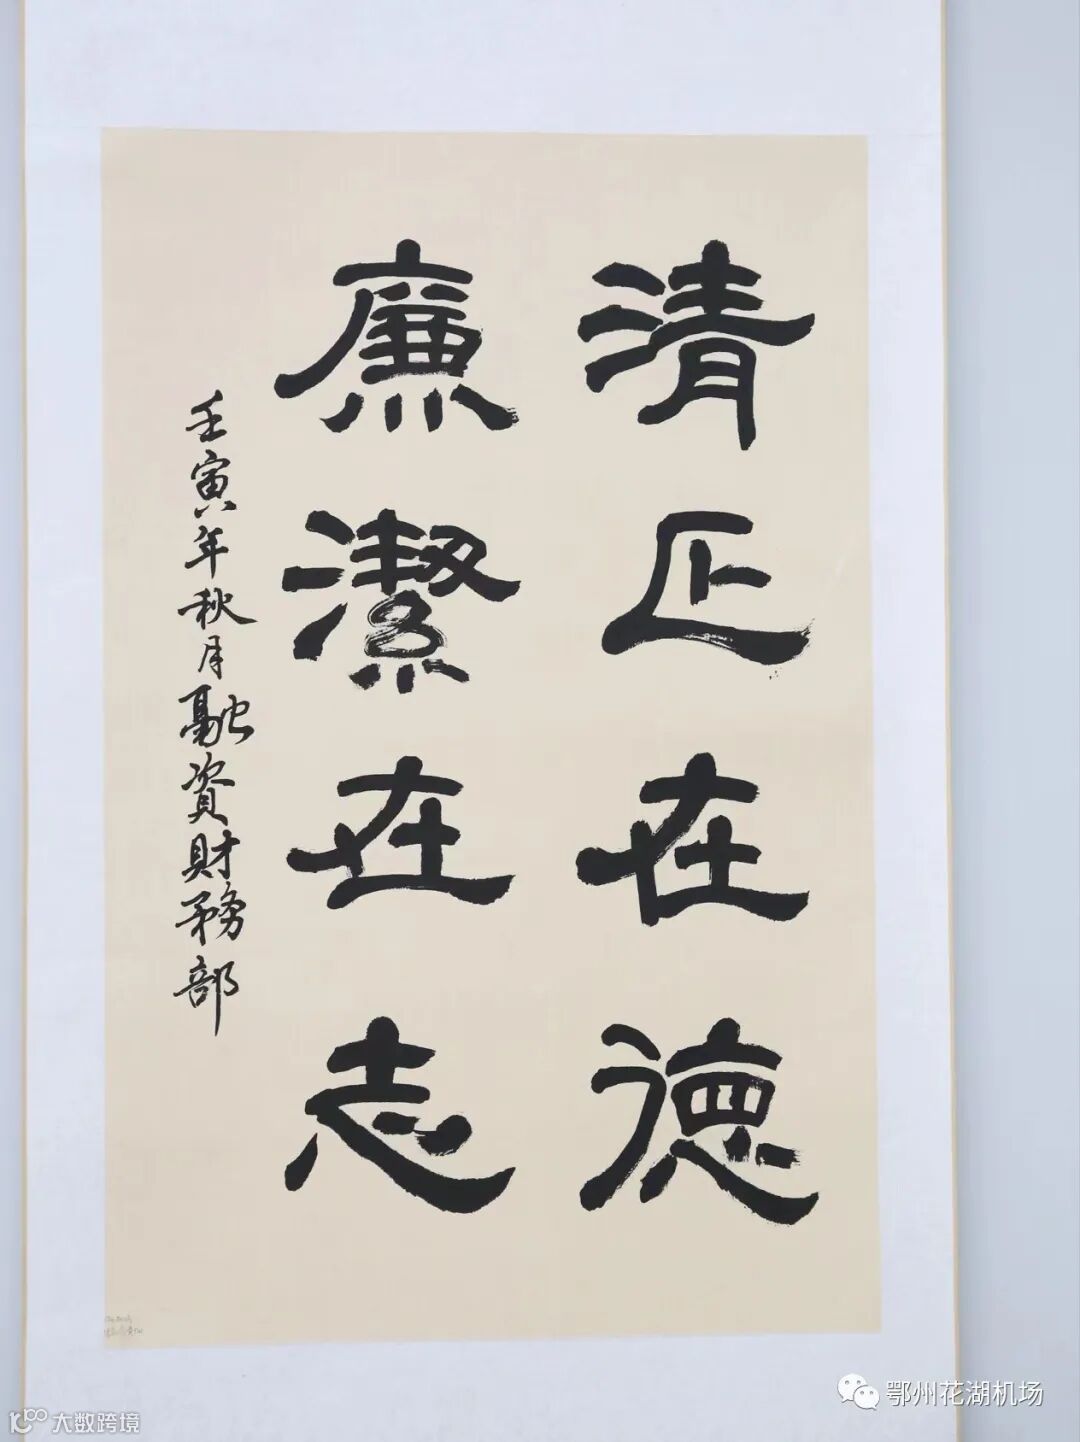 清正在德
廉潔在志
壬寅年秋月融資財務部
鄂州花湖机场
大数跨境